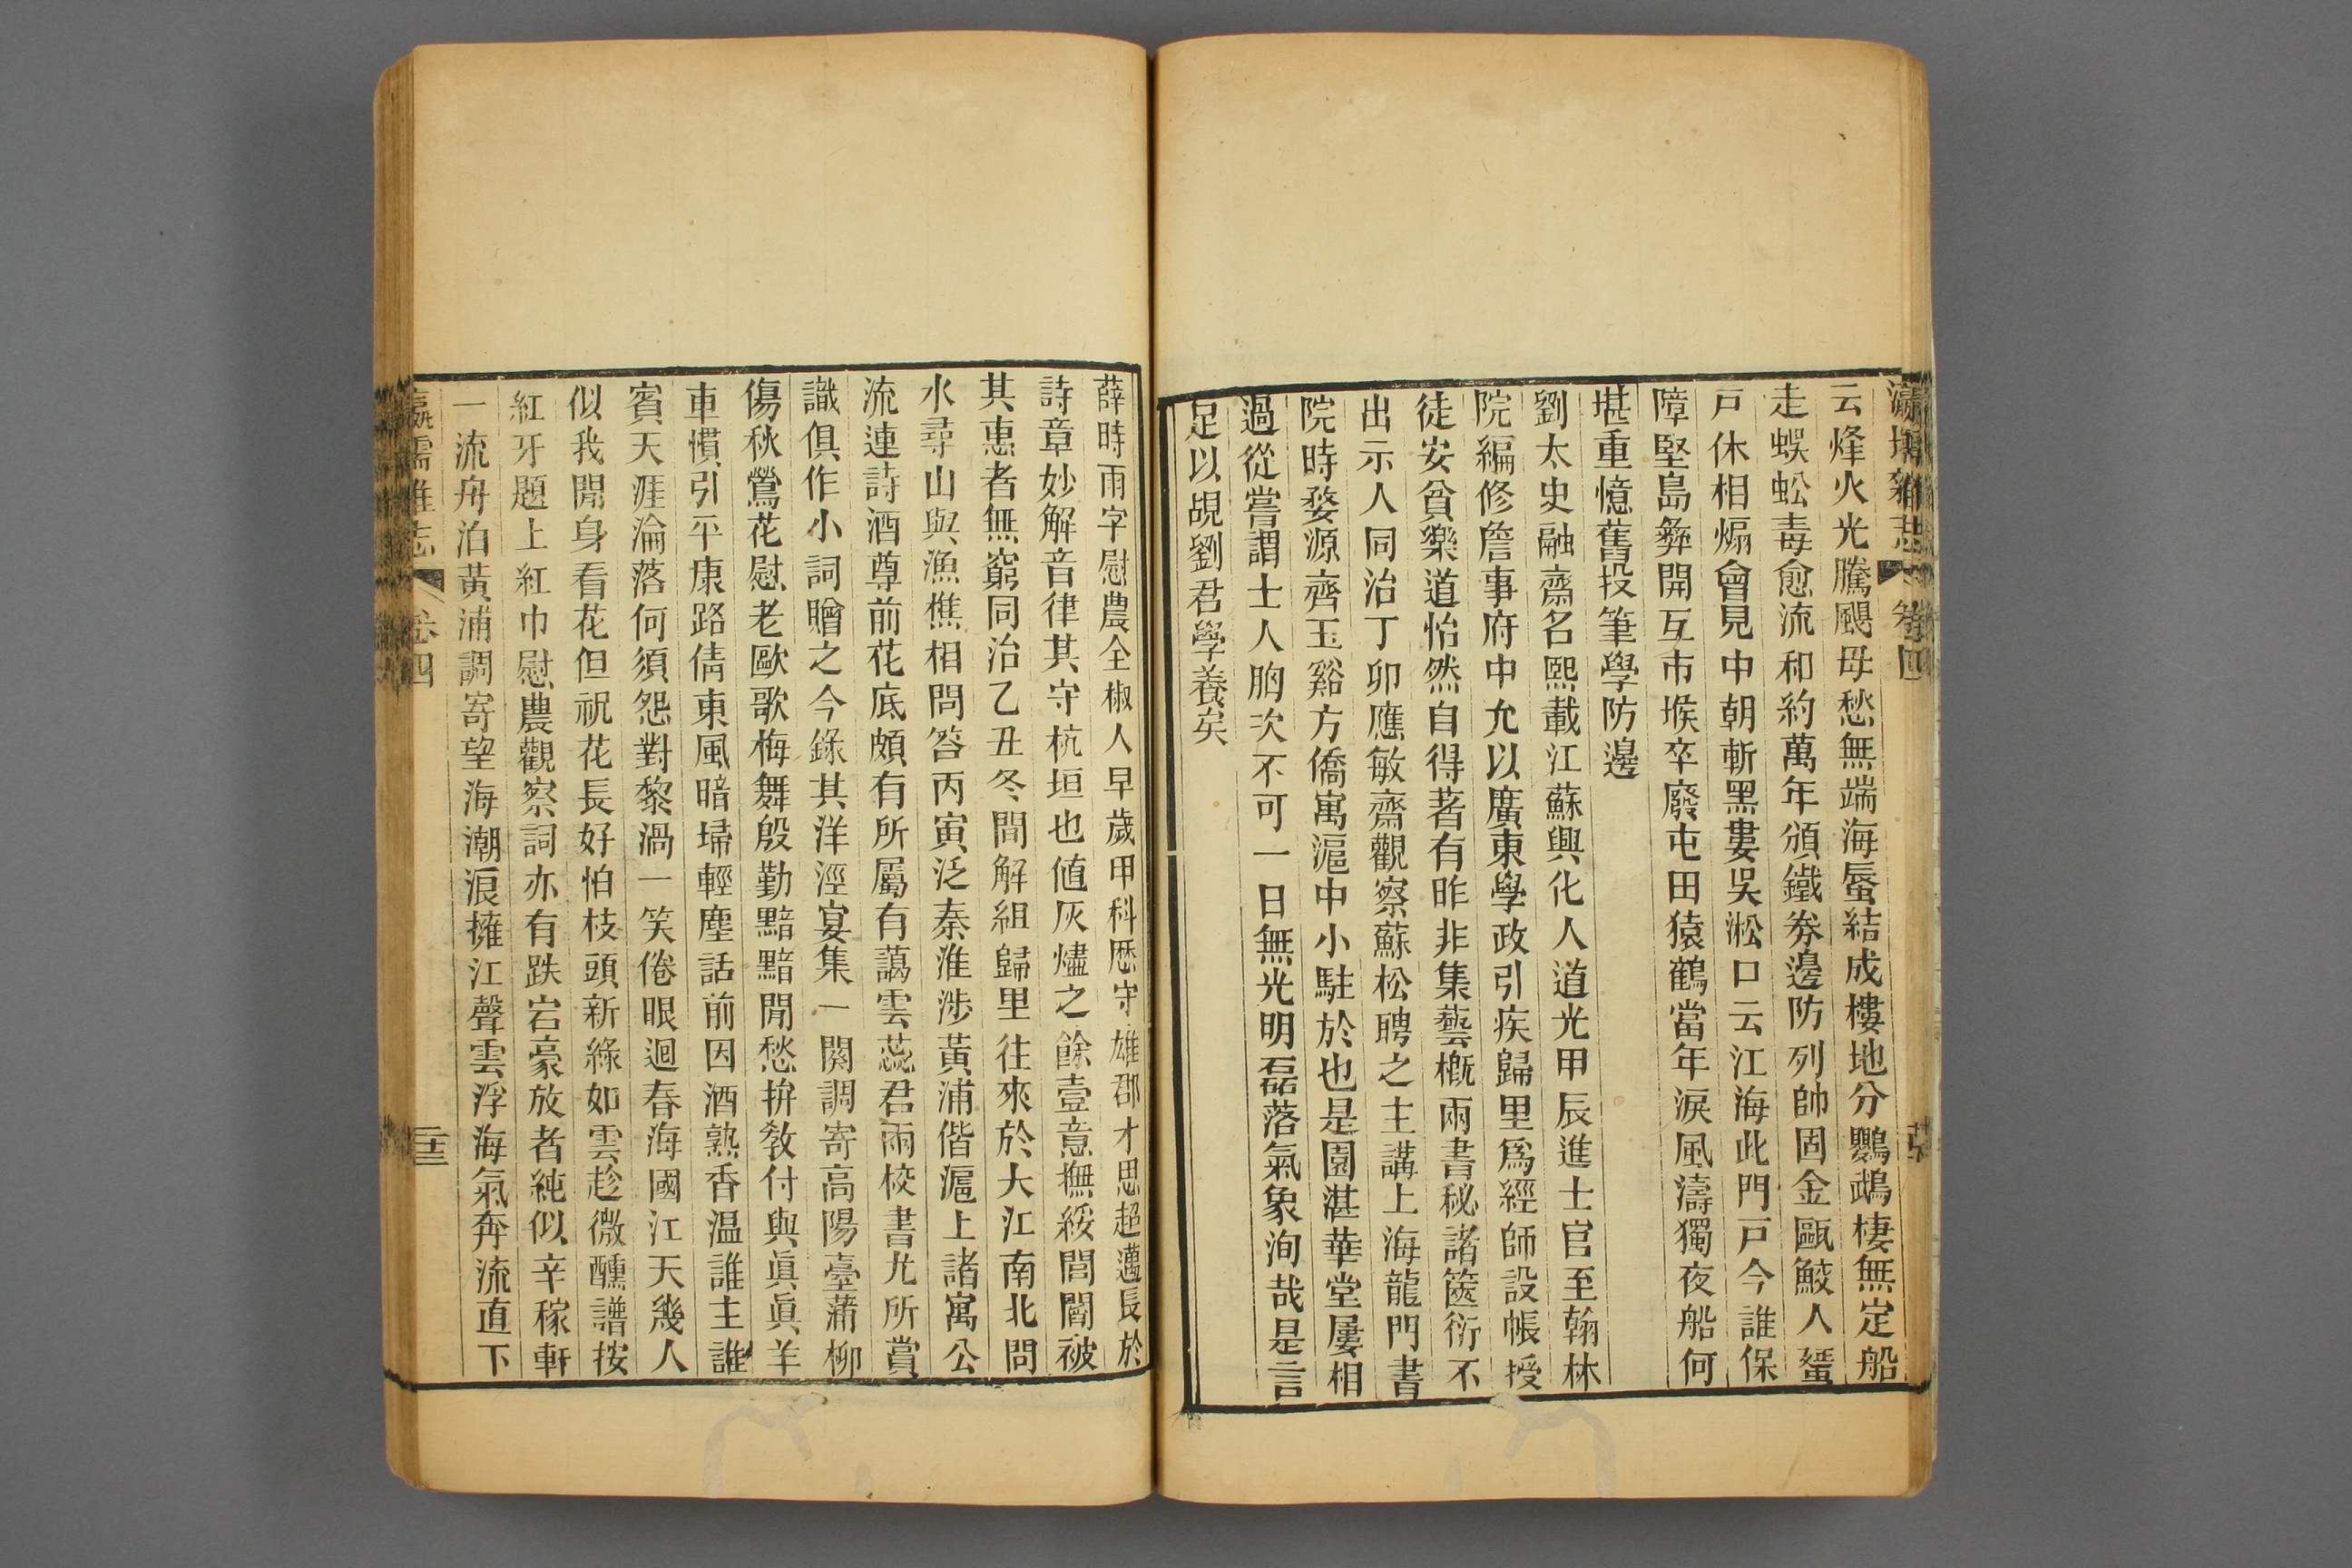 瀛壖雜志 卷四
云烽火光騰颶母愁無端海蜃結成樓地分鸚鵡棲無定船
走蜈蚣毒愈流和約萬年頒鐵劵邊防列帥固金甌鮫人蜑
戸休相煽會見中朝斬黑婁吳淞口云江海此門戸今誰保
障堅島彝開互市堠卒廢屯田猿鶴當年淚風濤獨夜船何
堪重憶舊投筆學防邊
劉太史融齋名熙載江蘇興化人道光甲辰進士官至翰林
院編修詹事府中允以廣東學政引疾歸里爲經師設帳授
徒安貧樂道怡然自得著有昨非集藝概兩書秘諸篋衍不
出示人同治丁卯應敏齋觀察蘇松聘之主講上海龍門書
院時婺源齊玉谿方僑寓滬中小駐於也是園湛華堂屢相
過從嘗謂士人胸次不可一日無光明磊落氣象洵哉是言
足以覘劉君學養矣
薛時雨字慰農全椒人早歲甲科歴守雄郡才思超邁長於
詩章妙解音律其守杭垣也値灰燼之餘壹意撫綏閭閻被
其惠者無窮同治乙丑冬間解組歸里往來於大江南北問
水尋山與漁樵相問答丙寅泛秦淮涉黃浦偕滬上諸寓公
流連詩酒尊前花底頗有所屬有藹雲蕊君兩校書尤所賞
識俱作小詞贈之今錄其洋涇宴集一闋調寄高陽臺蒲柳
傷秋鶯花慰老歐歌梅舞殷勤黯黯閒愁拚敎付與眞眞羊
車慣引平康路倩東風暗埽輕塵話前因酒熟香温誰主誰
賓天涯淪落何須怨對黎渦一笑倦眼迴春海國江天幾人
似我閒身看花但祝花長好怕枝頭新綠如雲趁微醺譜按
紅牙題上紅巾慰農觀察詞亦有跌宕豪放者純似辛稼軒
一流舟泊黃浦調寄望海潮浪擁江聲雲浮海氣奔流直下
瀛壖雜志 卷四 二十三